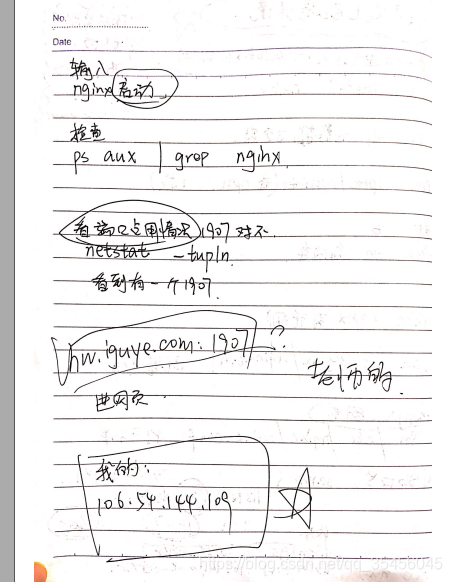 No.
Date
输入
nginx 启动
检查
ps aux | grep nginx
看端口占用情况 1907 对不
netstat -tupln
看到有一个1907
hw.iguye.com:1907 ?
老师的.
出网页.
我的:
106.54.144.109
https://blog.csdn.net/qq_35456045